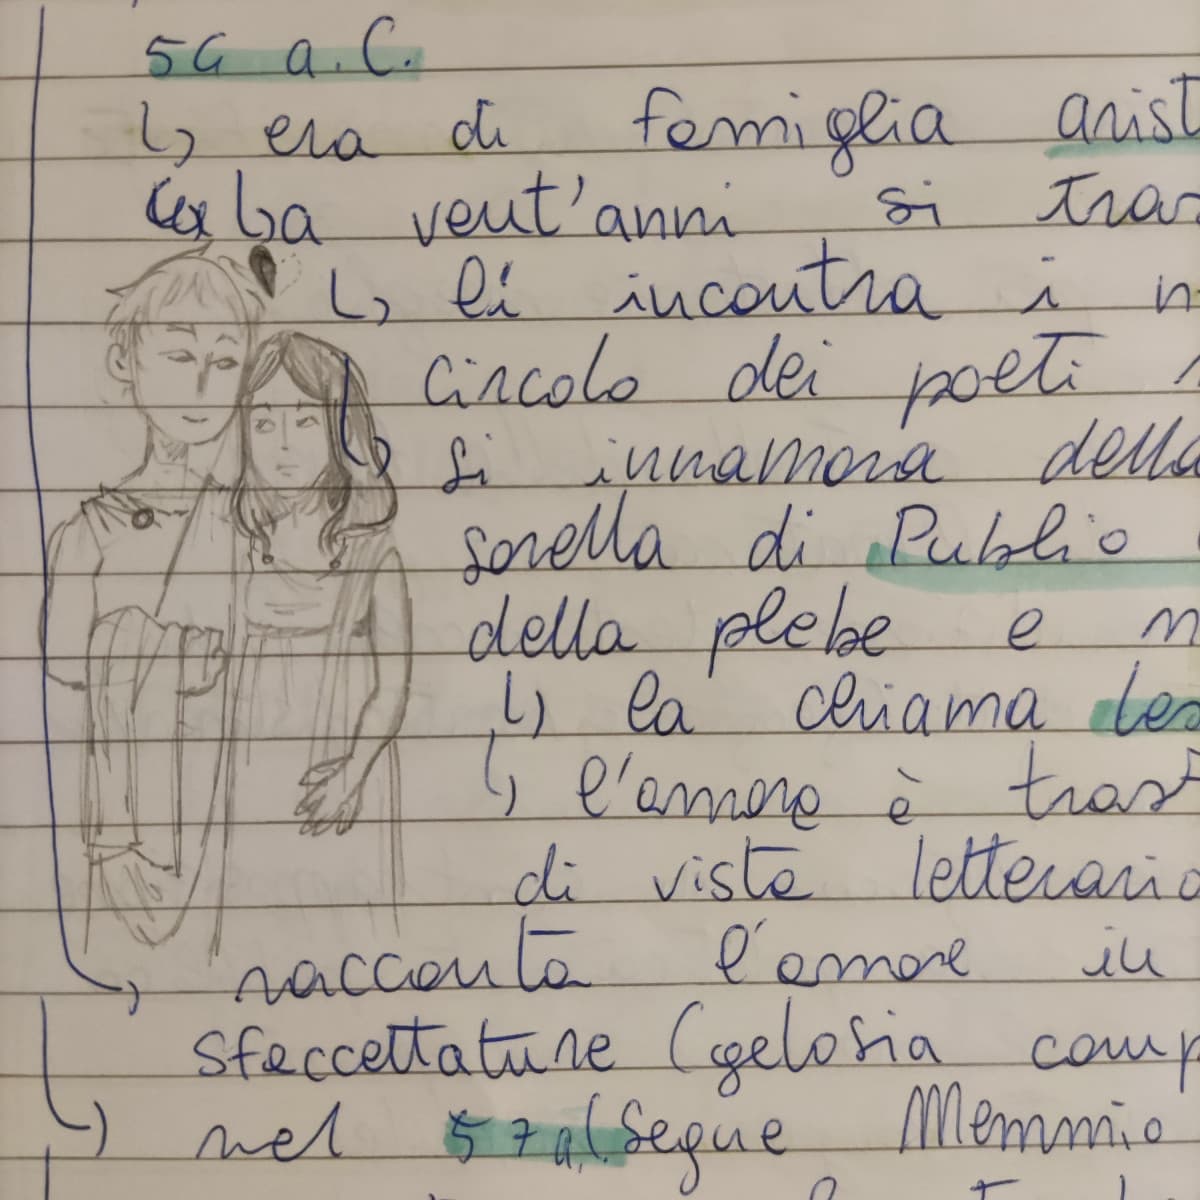 54 a.C.
↳ era di famiglia arist
a vent'anni si tras
↳ lì incontra i n
circolo dei poeti n
↳ si innamora della
sorella di Publio
della plebe e m
↳ la chiama Les
↳ l'amore è trasf
di vista letterario
↳ racconta l'amore in
sfaccettature (gelosia comp
↳ nel 57 a.C. segue Memmio